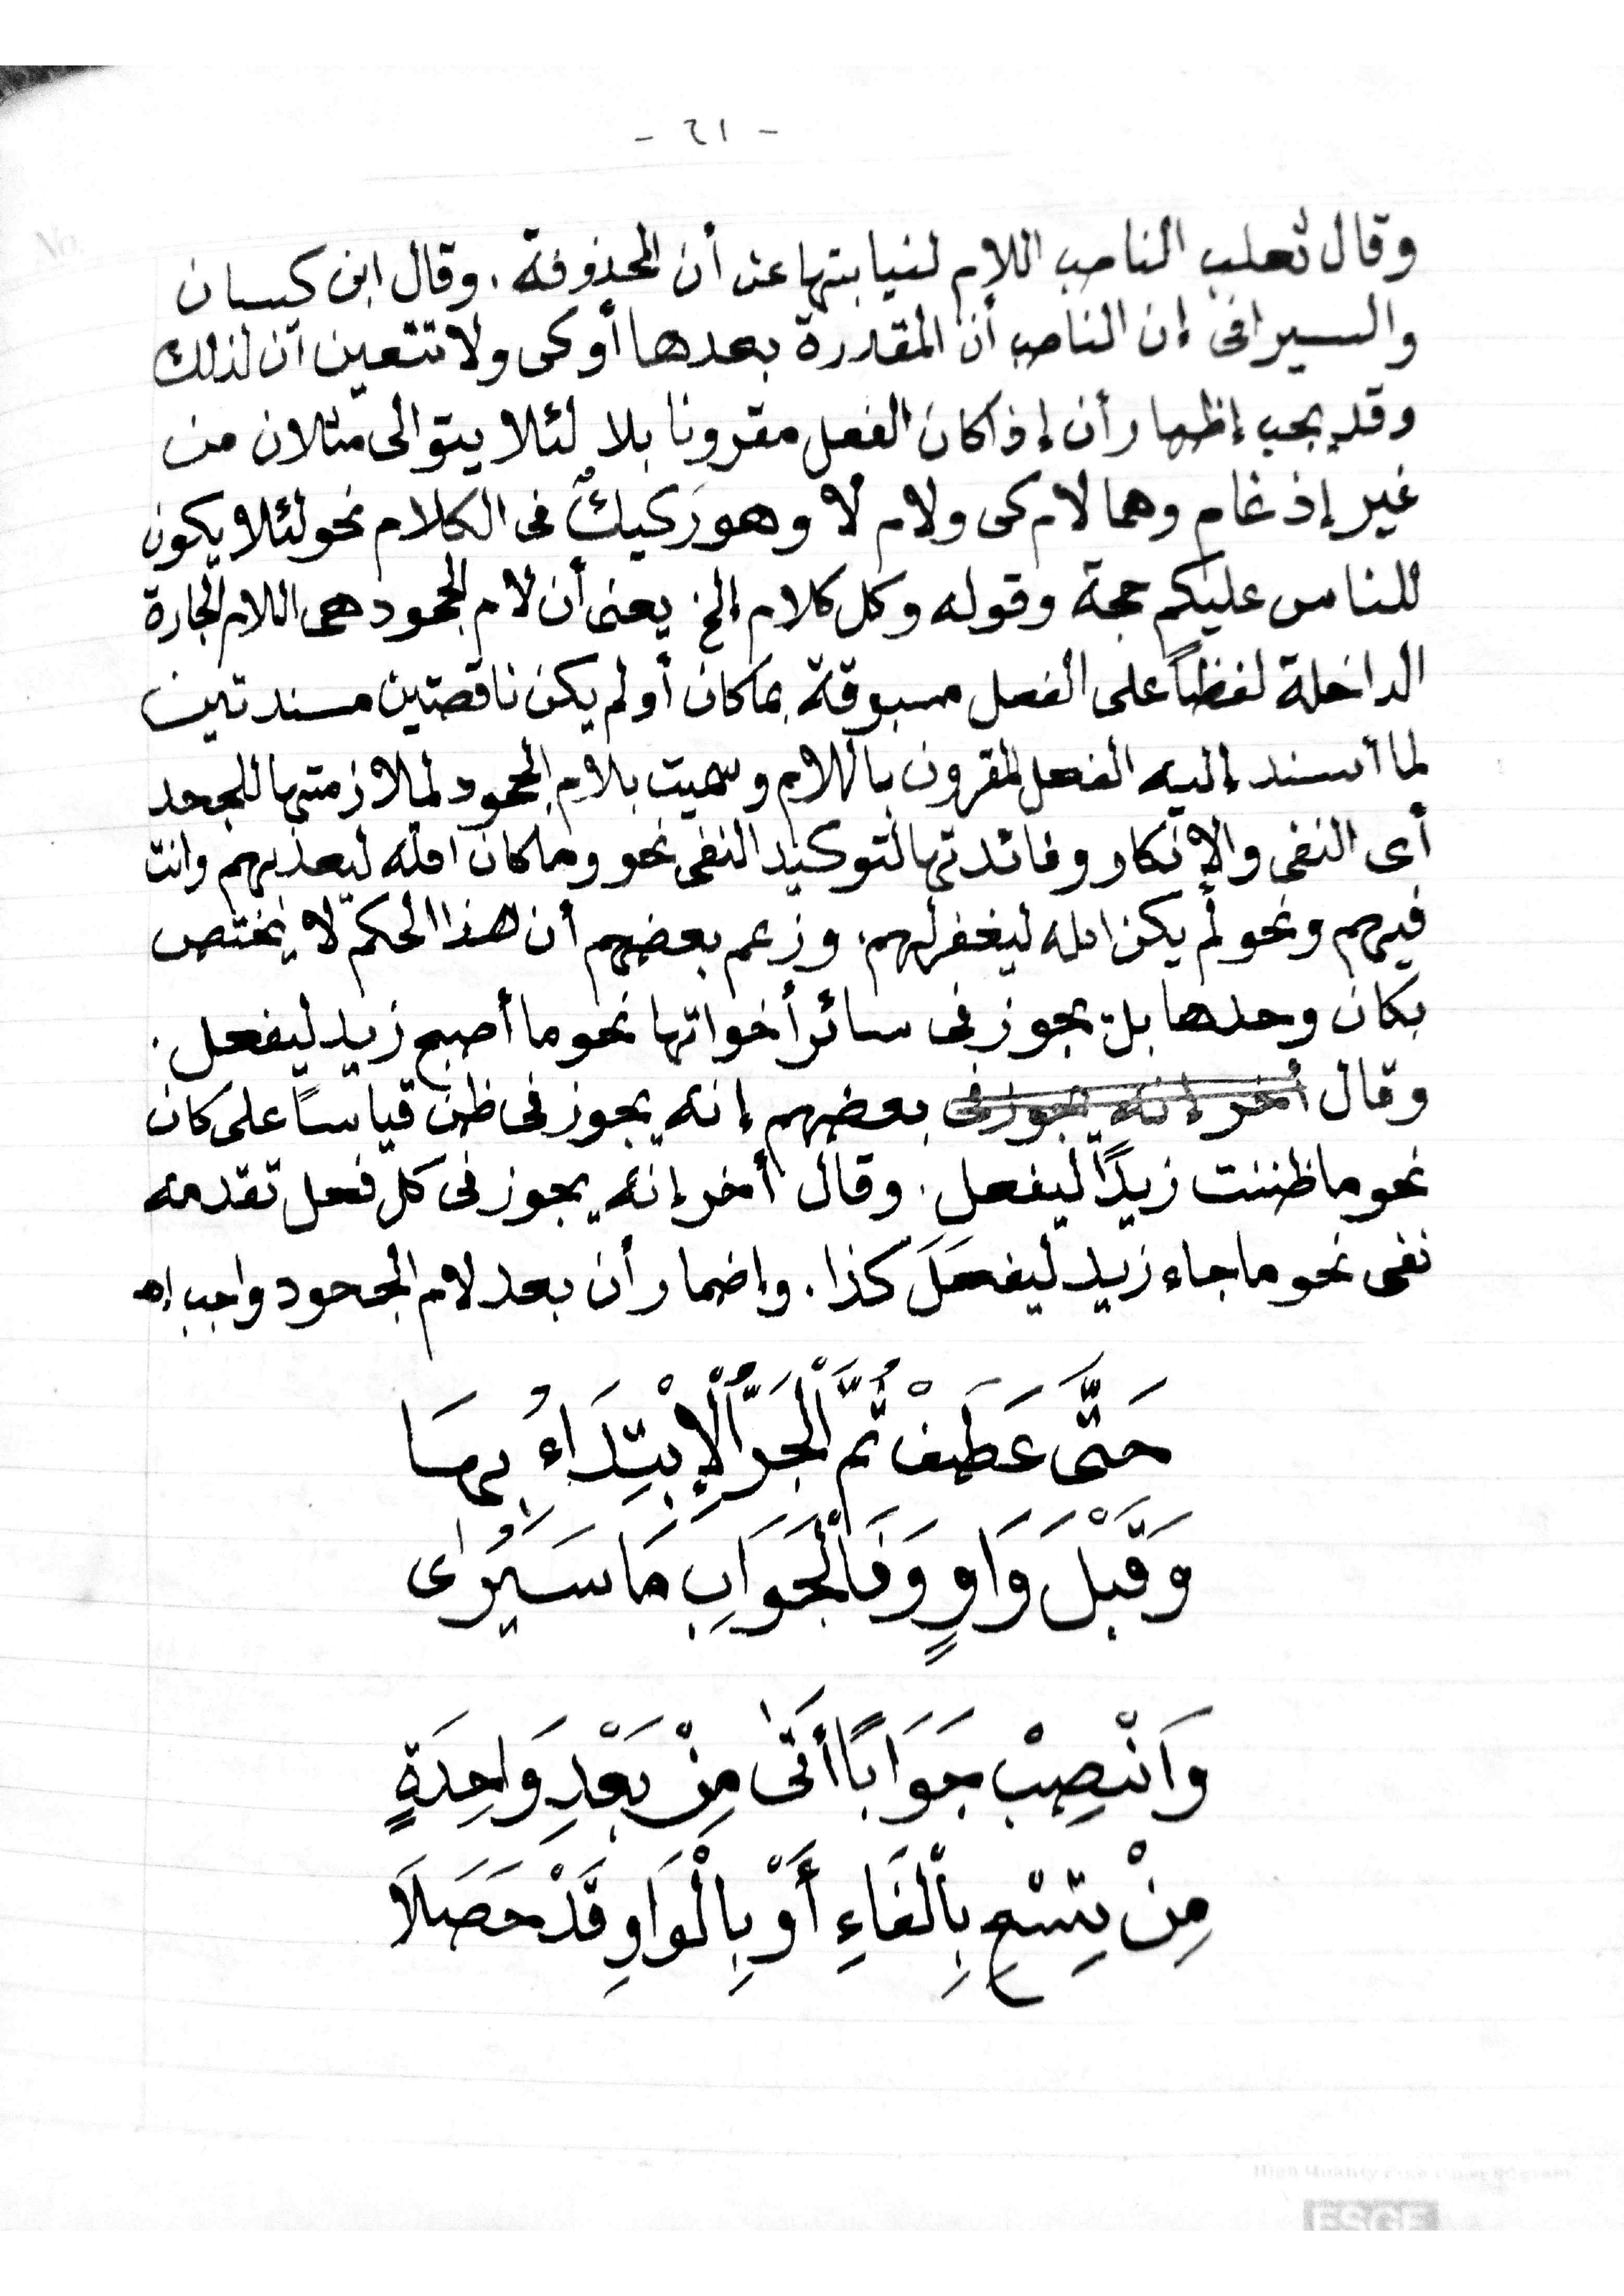 - ٦١ -
وقال ثعلب الناصب اللام لنيابتها عن أن المحذوفة . وقال ابن كيسان
والسيرافى إن الناصب أن المقدرة بعدها أو كى ولا تتعين أن لذلك
وقد يجب إظهار أن إذا كان الفعل مقرونا بلا لئلا يتوالى مثلان من
غير إدغام وهما لام كى ولام لا وهو ركيكٌ فى الكلام نحو لئلا يكون
للناس عليكم حجة وقوله وكل كلام إلخ يعنى أن لام الجحود هى اللام الجارة
الداخلة لفظاً على الفعل مسبوقة بما كان أو لم يكن ناقصتين مسندتين
لما أسند إليه الفعل المقرون باللام وسميت بلام الجحود لملازمتها للجحد
أى النفى والإنكار وفائدتها لتوكيد النفى نحو وما كان الله ليعذبهم وانت
فيهم ونحو لم يكن الله ليغفر لهم . وزعم بعضهم أن هذا الحكم لا يختص
بكان وحدها بل يجوز فى سائر أخواتها نحو ما أصبح زيد ليفعل .
وقال أخر إنه يجوز فى بعضهم إنه يجوز فى ظن قياسًا على كان
نحو ما ظننت زيدًا ليفعل . وقال أخر إنه يجوز فى كل فعل تقدمه
نفى نحو ما جاء زيد ليفعلَ كذا . وإضمار أن بعد لام الجحود واجب اه
حَتَّى عَطِفْ ثُمَّ الْجَرُّ الْإِبْتِدَاءُ بِهَا
وَقَبْلَ وَاوٍ وَفَا الْجَوَابِ مَا سَيُرَٰى
وَانْصِبْ جَوَابًا أَتَىٰ مِنْ بَعْدِ وَاحِدَةٍ
مِنْ تِسْعٍ بِالْفَاءِ أَوْ بِالْوَاوِ قَدْ حَصَلَا
ESGE